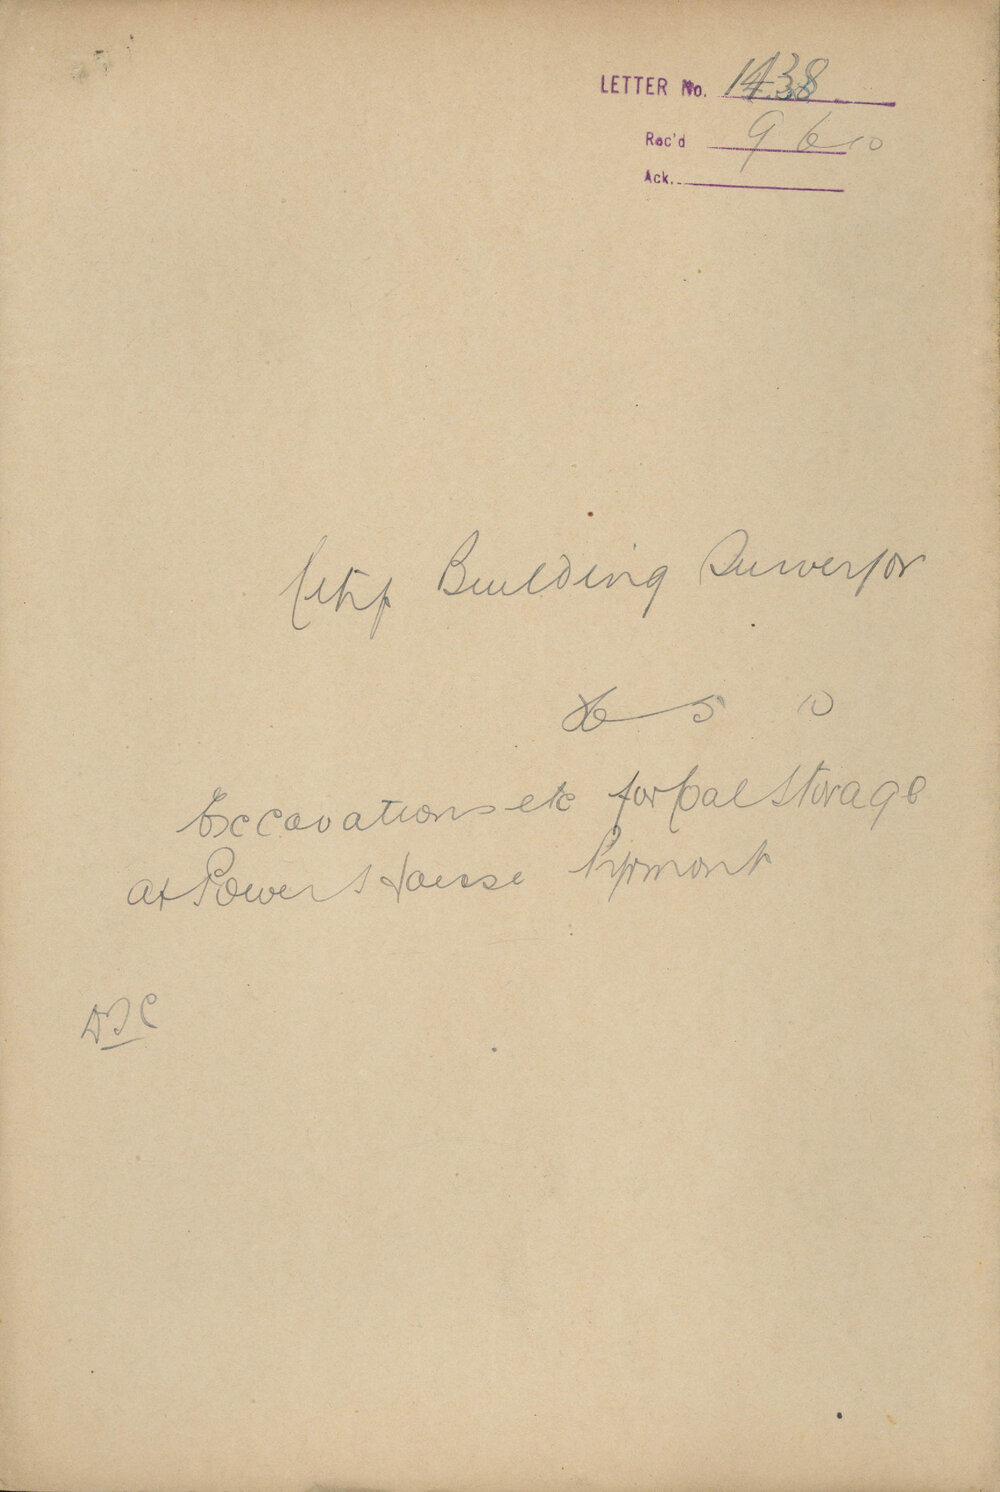 LETTER No. 1438
Rec'd 9 6 10
Ack.
City Building Surveyor
6 5 10
Excavations etc for Coal Storage
at Power House Pyrmont